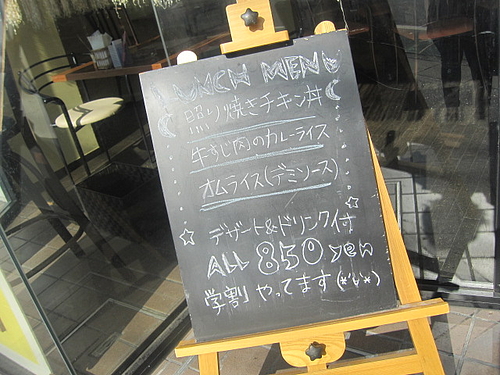 LUNCH MENU
照り焼きチキン丼
牛すじ肉のカレーライス
オムライス(デミソース)
デザート&ドリンク付
ALL 850 yen
学割 やってます(*'v'*)